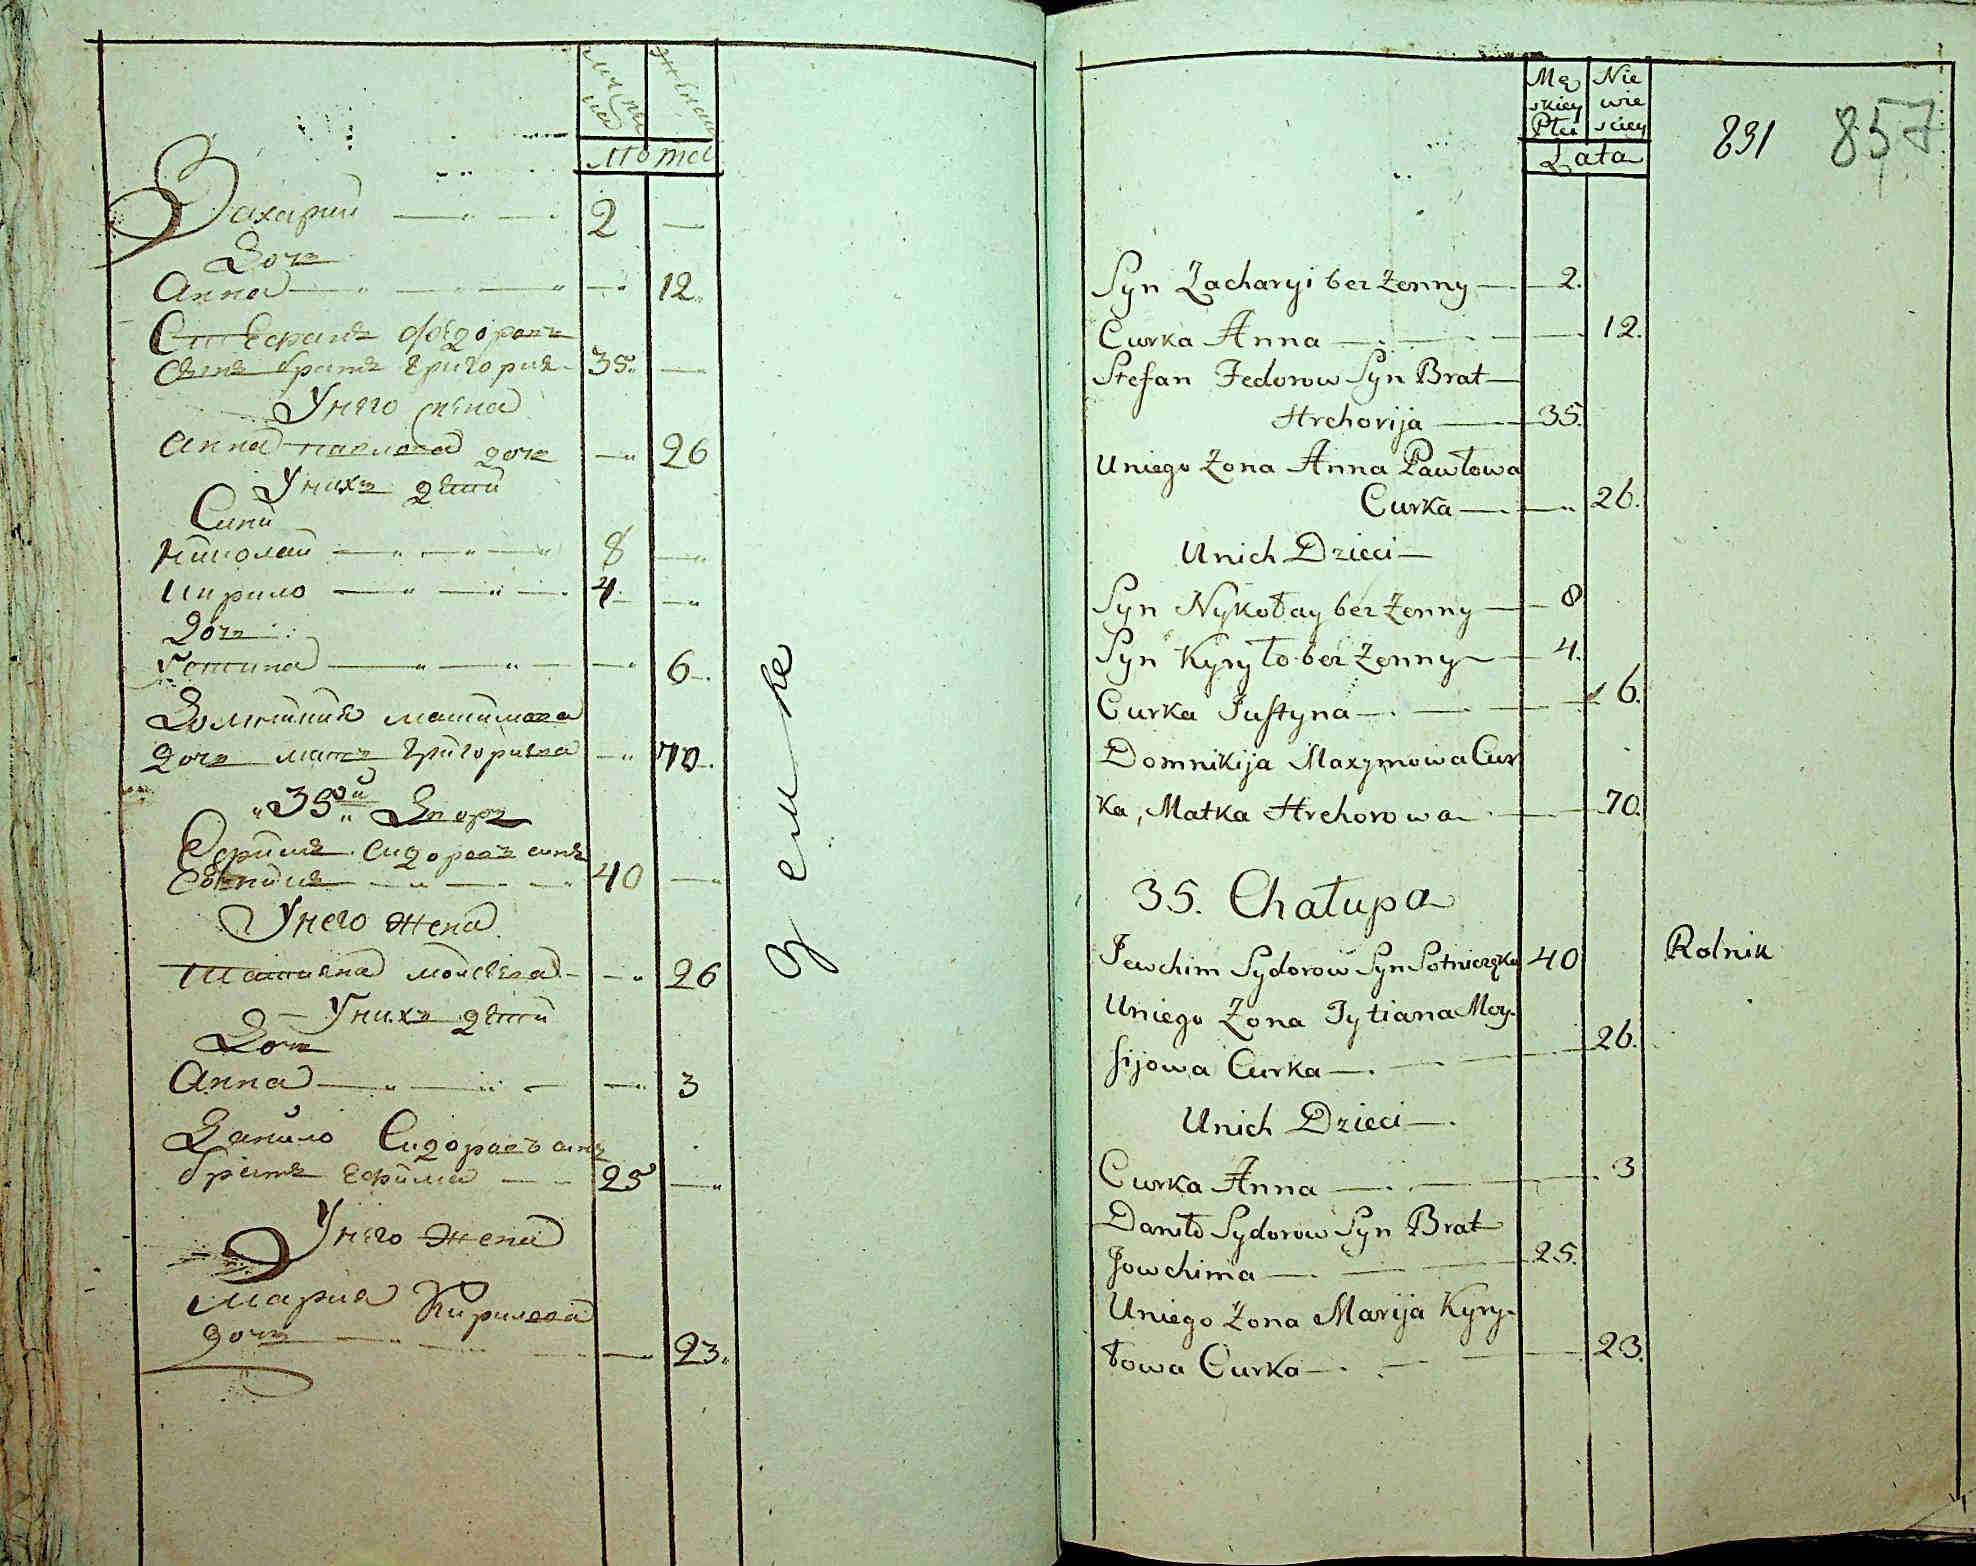 Лѣта
Захарий 2
Дочь
Анна 12
Стефанъ Федоровъ
сынъ братъ Григория 35
У него жена
Анна Павлова дочь 26
У нихъ дѣти
Сыны
Николай 8
Кирило 4
Дочь
Устина 6
Домникия Максимова
дочь мать Григориева 70
35ой Дворъ
Ефимъ Сидоровъ сынъ
40
У него жена
Татияна Мойсѣева 26
У нихъ дѣти
Дочь
Анна 3
Данило Сидоровъ сынъ
братъ Ефима 25
У него жена
Мария Кирилова
дочь 23
Mę Nie
skiey wie
Płci sciey
Lata
831 857
Syn Zacharyi bez Zenny 2.
Curka Anna 12.
Stefan Fedorow Syn Brat
Hrehorija 35.
Uniego Zona Anna Pawłowa
Curka 26.
Unich Dzieci
Syn Nykołay bez Zenny 8
Syn Kyryło bez Zenny 4.
Curka Justyna 6.
Domnikija Maxymowa Cur
ka, Matka Hrehorowa 70.
35. Chałupa
Jewchim Sydorow Syn Sotniczęka 40 Rolnik
Uniego Zona Tytiana Moy-
sijowa Curka 26.
Unich Dzieci
Curka Anna 3
Daniło Sydorow Syn Brat
Jowchima 25.
Uniego Zona Marija Kyry-
łowa Curka 23.